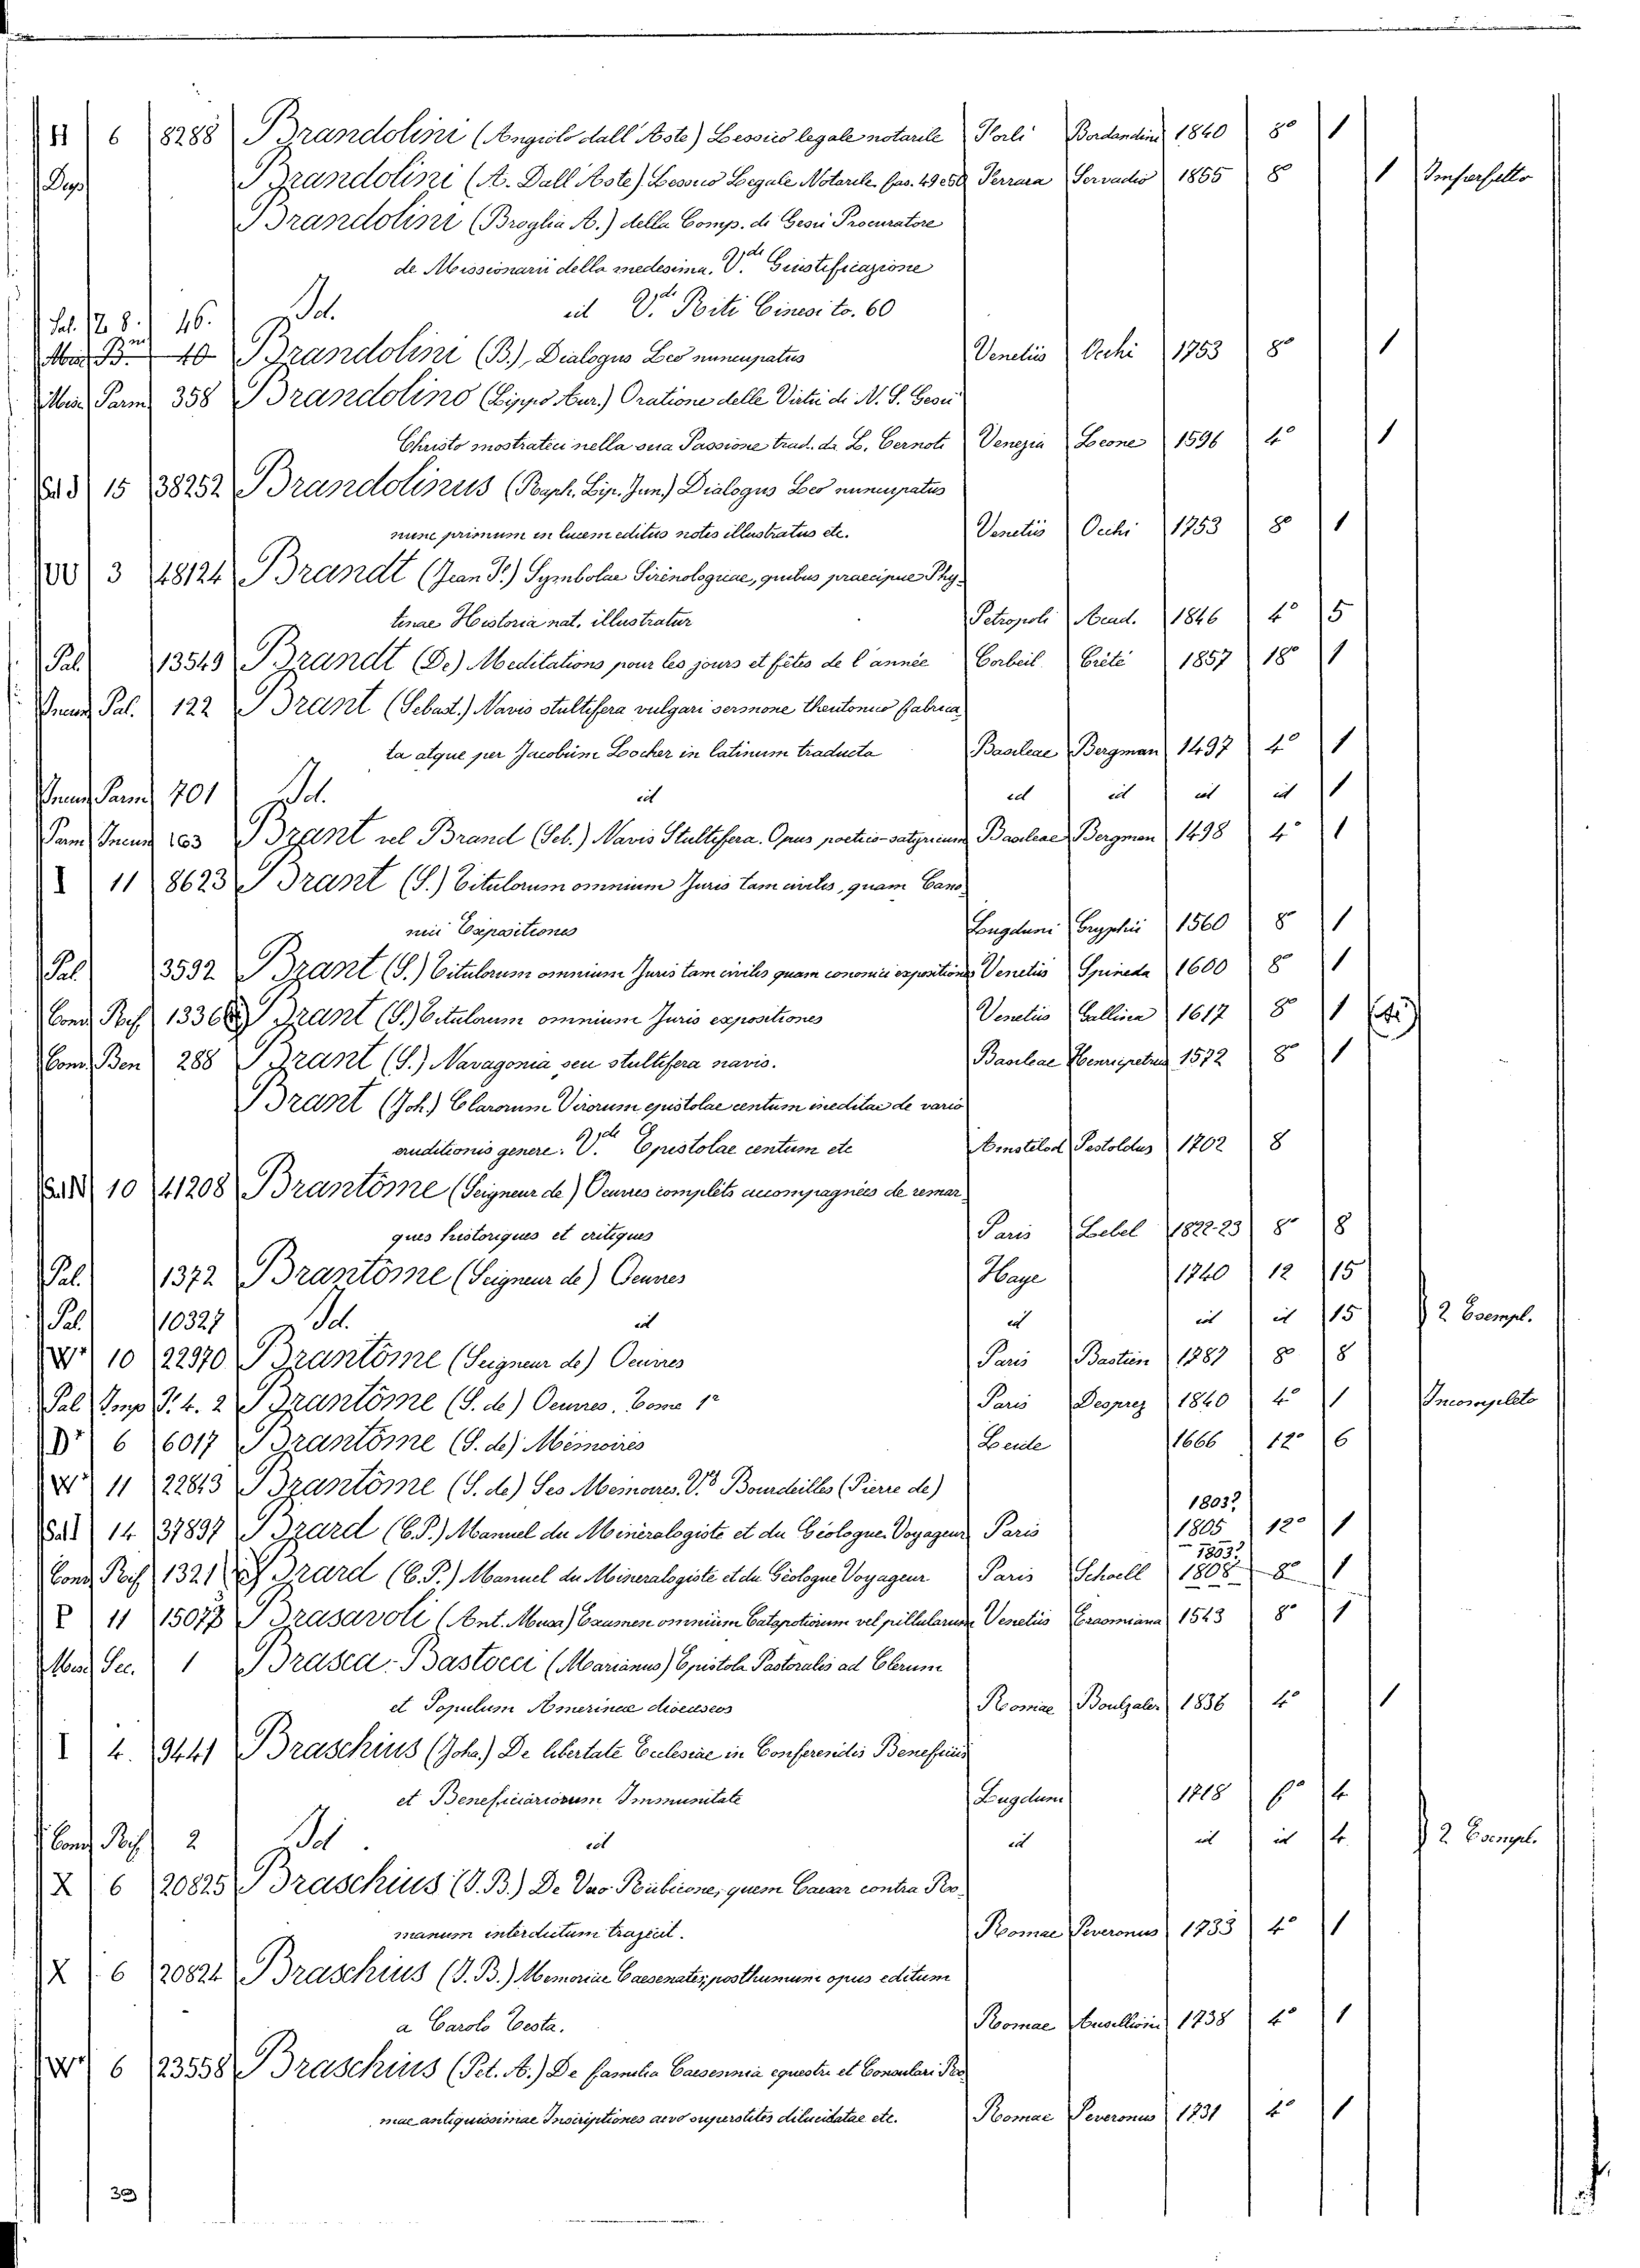 H 6 8288 Brandolini (Angiolo dall Aste) Lessico legale notarile Forli Bordandini 1840 8° 1
Dep Brandolini (A. Dall Aste). Lessico Legale Notarile fas. 49 e 50 Ferrara Servadio 1865 8° 1 Imperfetto
Brandolini (Broglia A.) della Comp. di Gesù Procuratore
de Missionarii della medesima. V.de Giustificazione
Sal. 12. 8. 46. Id. id V.di Riti Cinesi to. 60
Misc. B. 40 Brandolini (B.), Dialogus Leo nuncupatus Venetiis Occhi 1753 8° 1
Misc. Parm 358 Brandolino (Lippo Aur.) Oratione delle Virtù di N. S. Gesù
Christo mostrateci nella sua Passione trad. da L. Cernoti Venezia Leone 1596 4° 1
15 38252 Brandolinus (Raph. Lip. Jun.) Dialogus Leo nuncupatus
nunc primum in lucem editus notis illustratus etc. Venetiis Occhi 1753 8° 1
3 48124 Brandt (Jean F.) Symbolae Sirenologicae, quibus praecipue Rhy-
tinae Historia nat. illustratur Petropoli Acad. 1846 4° 5
Pal. 13549 Brandt (De) Meditations pour les jours et fêtes de l'année Corbeil Crété 1857 18° 1
Incun. Pal. 122 Brant (Sebast.) Navis stultifera vulgari sermone theutonico fabrica
ta atque per Jacobum Locher in latinum traducta Basileae Bergman 1497 4° 1
Incun. Parm 701 Id. id id id id id 1
Parm Incun 163 Brant vel Brand (Seb.) Navis Stultifera. Opus poetico-satyricum Basileae Bergman 1498 4° 1
I 11 8623 Brant (S.) Titulorum omnium Juris tam civilis, quam Cano
nici Expositiones Lugduni Gryphii 1560 8° 1
Pal. 3592 Brant (S.) Titulorum omnium Juris tam civilis quam canonici expositiones Venetiis Spineda 1600 8° 1
Cons. Ris. 1336 Brant (S.) Titulorum omnium Juris expositiones Venetiis Gallina 1617 8° 1
Cons. Ben 288 Brant (S.) Navagonia seu stultifera navis. Basileae Henricpetrus 1572 8° 1
Brant (Joh.) Clarorum Virorum epistolae centum ineditae de vario
eruditionis genere. V.de Epistolae centum etc Amstelod Pestoldus 1702 8
10 41208 Brantôme (Seigneur de) Oeuvres complèts accompagnées de remar
ques historiques et critiques Paris Lebel 1822-23 8° 8
Pal. 1372 Brantôme (Seigneur de) Oeuvres Haye 1740 12 15
Pal. 10327 Id. id id id id 15 2 Esempl.
10 22970 Brantôme (Seigneur de) Oeuvres Paris Bastien 1787 8° 8
Pal Imp F. 4. 2 Brantôme (S. de) Oeuvres. Tome 1r Paris Desprez 1840 4° 1 Incompleto
6 6017 Brantôme (S. de) Mémoires Leide 1666 12° 6
11 22843 Brantôme (S. de) Ses Memoires. V. Bourdeilles (Pierre de)
14 37897 Brard (C.P.) Manuel du Minéralogiste et du Géologue Voyageur Paris 1803? 1805 12° 1
Cons Ris 1321 Brard (C.P.) Manuel du Mineralogiste et du Géologue Voyageur Paris Schoell 1803? 1808 8° 1
P 11 15073 Brasavoli (Ant. Musa) Examen omnium Catapotiorum vel pillularum Venetiis Erasmiana 1543 8° 1
Misc Sec. 1 Brasca-Bastocci (Marianus) Epistola Pastoralis ad Clerum
et Populum Amerinae dioeceseos Romae Boulzaler 1836 4° 1
I 4. 9441 Braschius (Joha.) De libertate Ecclesiae in Conferendis Beneficiis
et Beneficiariorum Immunitate Lugduni 1718 f° 4
Cons Ris 2 Id. id id id id 4 2 Esempl.
X 6 20825 Braschius (J. B.) De Vero Rubicone, quem Caesar contra Ro-
manum interdictum trajecit. Romae Peveronus 1733 4° 1
X 6 20824 Braschius (J. B.) Memoriae Caesenates, posthumum opus editum
a Carolo Testa. Romae Ausillioni 1738 4° 1
6 23558 Braschius (Pet. A.) De familia Caesennia equestri et Consulari Ro
mae antiquissimae Inscriptiones aevo superstites dilucidatae etc. Romae Peveronus 1731 4° 1